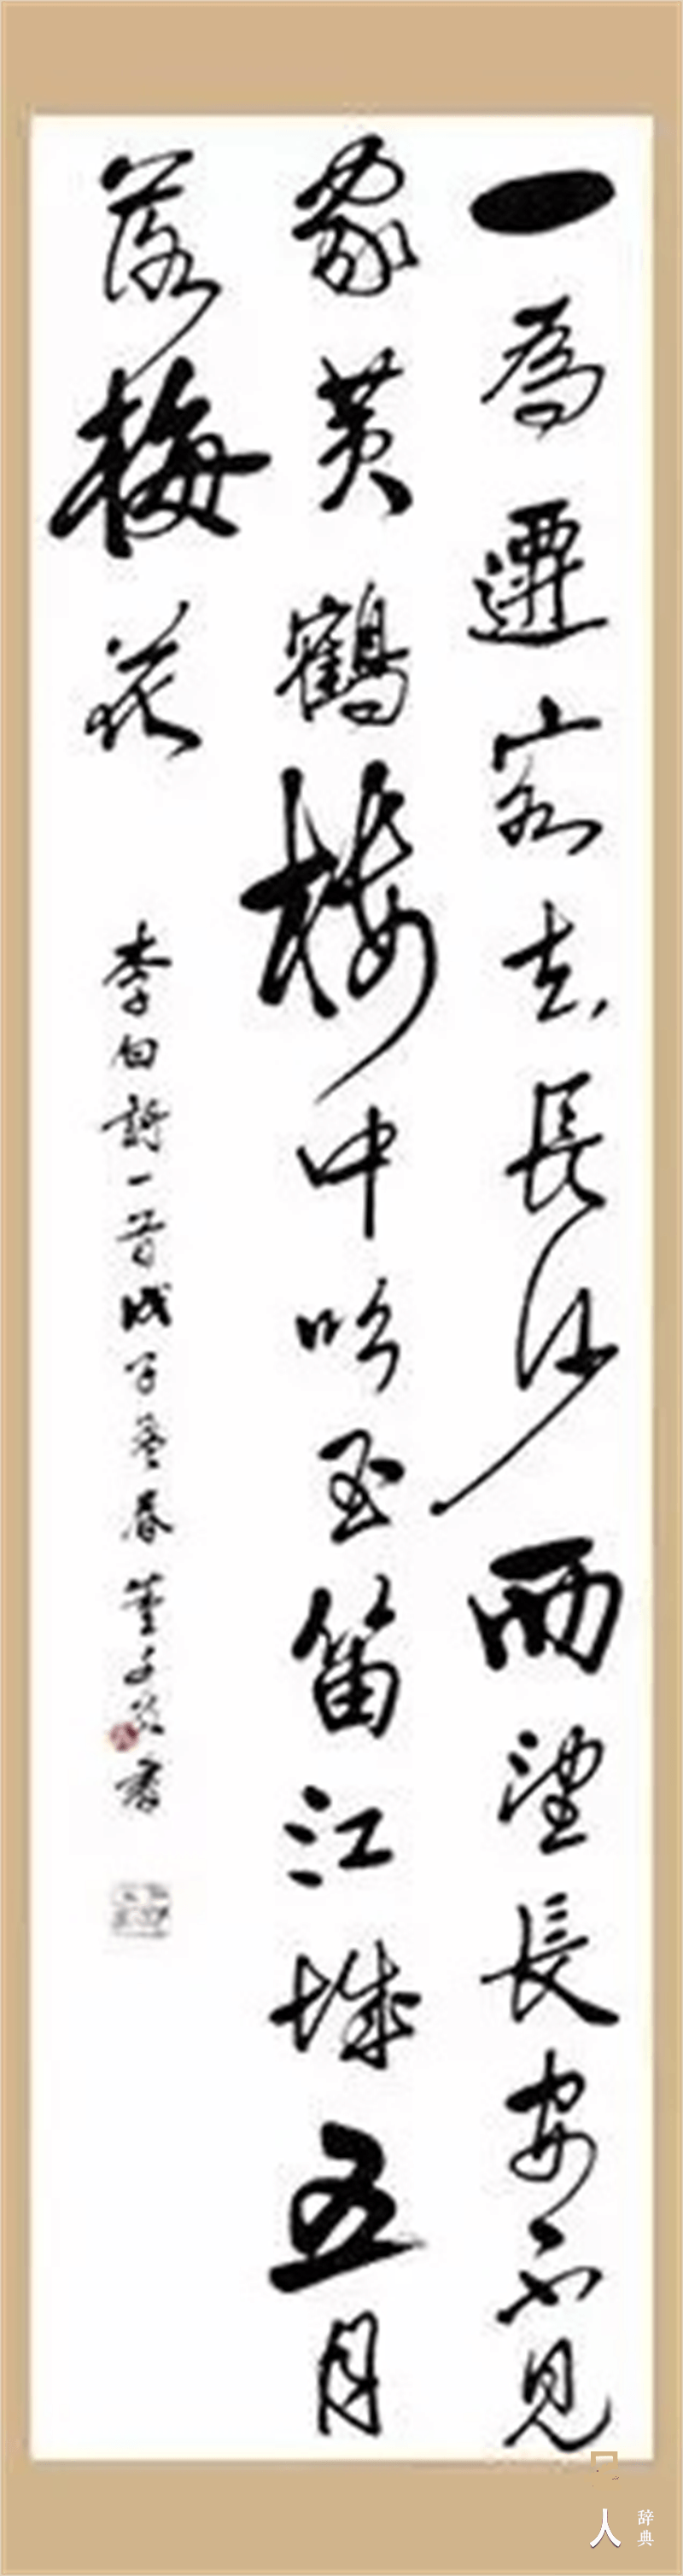 一為遷客去長沙西望長安不見
家黃鶴樓中吹玉笛江城五月
落梅花 李白詩一首戊子春董文書
人
辞典